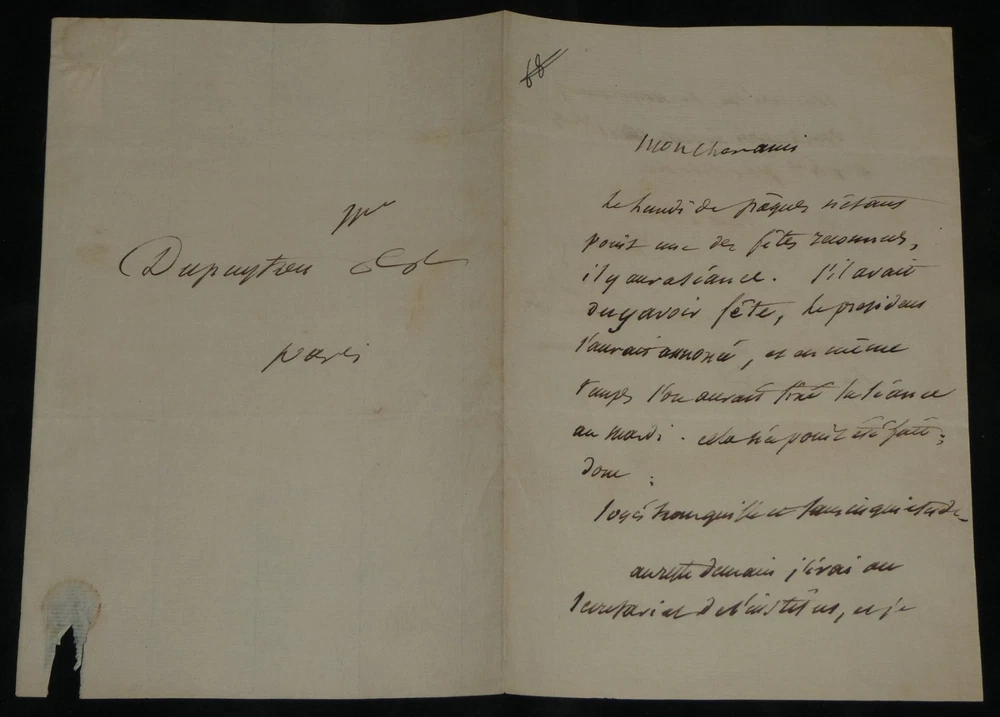 mr
Dupuytren
paris
68
Mon cher ami
le lundi de pâques n'étant
point une des fêtes reconnues,
il y aura séance. s'il avait
du y avoir fête, le président
l'aurait annoncé, et en même
temps l'on aurait fixé la séance
au mardi. cela n'a point été fait;
donc :
soyés tranquille et sans inquietude
au reste demain j'irai au
secretariat de l'institut, et je